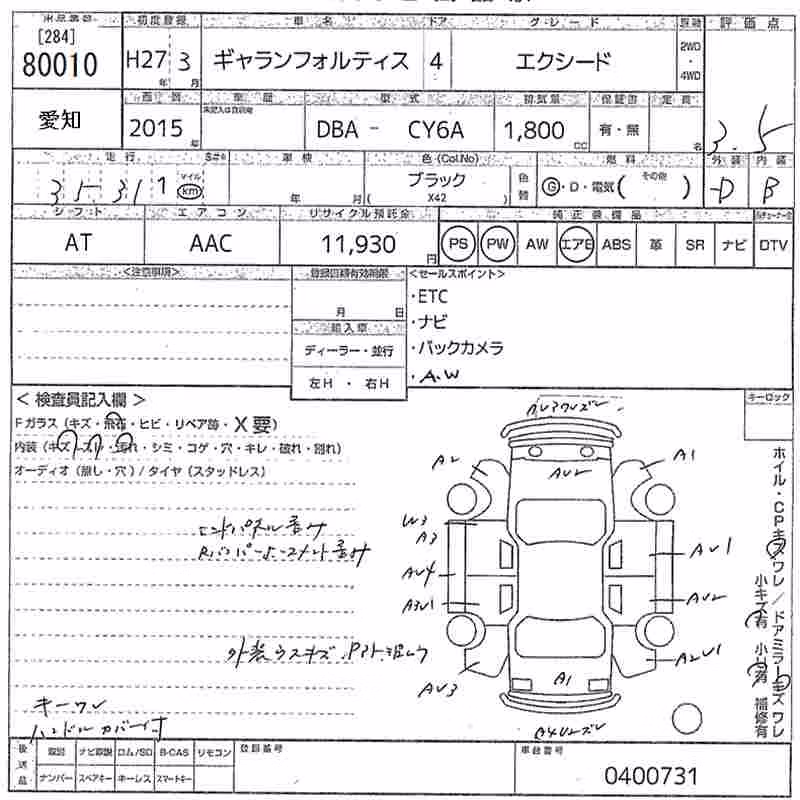 出品番号 初度登録 車名 ドア グレード 駆動 評価点
[284]
80010 H27年 3月 ギャランフォルティス 4 エクシード 2WD・4WD
3.5
愛知 2015年 未記入は自家用 型式 排気量 保証書 定員
DBA - CY6A 1,800 CC 有・無 名
走行 車検 色(Col.No) 燃料 外装 内装
35311 マイル km 年 月 ブラック 色替 G・D・電気( その他 ) D B
( X42 )
シフト エアコン リサイクル預託金 純正装備品
AT AAC 11,930円 PS PW AW エアB ABS 革 SR ナビ DTV
<注意事項> 登録口続有効期限 <セールスポイント>
月 日 ・ETC
輸入車 ・ナビ
ディーラー・並行 ・バックカメラ
左H ・ 右H ・A.W
< 検査員記入欄 > キーロック
Fガラス (キズ・飛石・ヒビ・リペア跡・X要)
内装 (キズ・スレ・汚れ・シミ・コゲ・穴・キレ・破れ・割れ)
オーディオ (無し・穴) / タイヤ (スタッドレス)
A2 AU2 A1
W3
A3
AU1
AU4
A3U1 AU2
エンドパネル歪み
外装ウスキズ
AU3 A1 A2U1
キーワレ
ハンドルカバー付
ホイル・CPキズワレ / ドアミラーキズワレ
小キズ有 小凹有 補修有
後送品 取説 ナビ取説 ロム/SD B-CAS リモコン 登録番号 車台番号
ナンバー スペアキー キーレス スマートキー 0400731